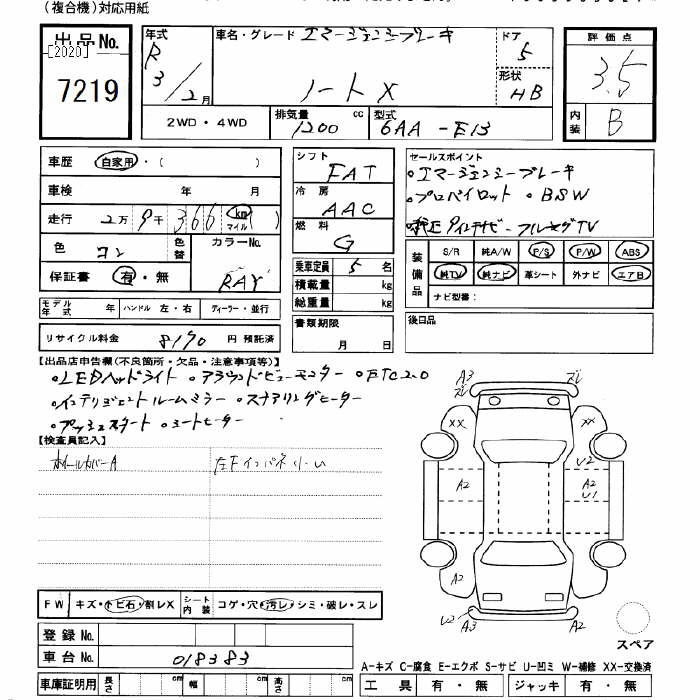 (複合機)対応用紙
出品No. [2020] 7219
年式 R 3/2月
車名・グレード エマージェンシーブレーキ ノートX
ドア 5
形状 HB
評価点 3.5
内装 B
2WD・4WD 排気量 1200 cc 型式 6AA-E13
車歴 自家用・( )
車検 年 月
走行 2万 9千 366 km マイル ( )
色 コン 色替 カラーNo. RAY
保証書 有・無
モデル年式 年 ハンドル 左・右 ディーラー・並行
リサイクル料金 8170 円 預託済
シフト FAT
冷房 AAC
燃料 G
乗車定員 5 名
積載量 kg
総重量 kg
書類期限 月 日
セールスポイント
・エマージェンシーブレーキ
・プロパイロット・BSW
・純正9インチナビ-フルセグTV
装備品 S/R 純A/W P/S P/W ABS
純TV 純ナビ 革シート 外ナビ エアB
ナビ型番:
後日品
【出品店申告欄(不良箇所・欠品・注意事項等)】
・LEDヘッドライト ・アラウンドビューモニター ・ETC2.0
・インテリジェントルームミラー ・ステアリングヒーター
・プッシュスタート ・シートヒーター
【検査員記入】
ホイールカバーA 左Fインパネ小
A3 ズレ ズレ
XX XX
U2
A2 A2 U1
A2
U2 A3 A2
スペア
FW キズ・トビ石・割レX シート内装 コゲ・穴・汚レ・シミ・破レ・スレ
登録No.
車台No. 018383
車庫証明用 長さ cm 幅 cm 高さ cm
A-キズ C-腐食 E-エクボ S-サビ U-凹ミ W-補修 XX-交換済
工具 有・無 ジャッキ 有・無